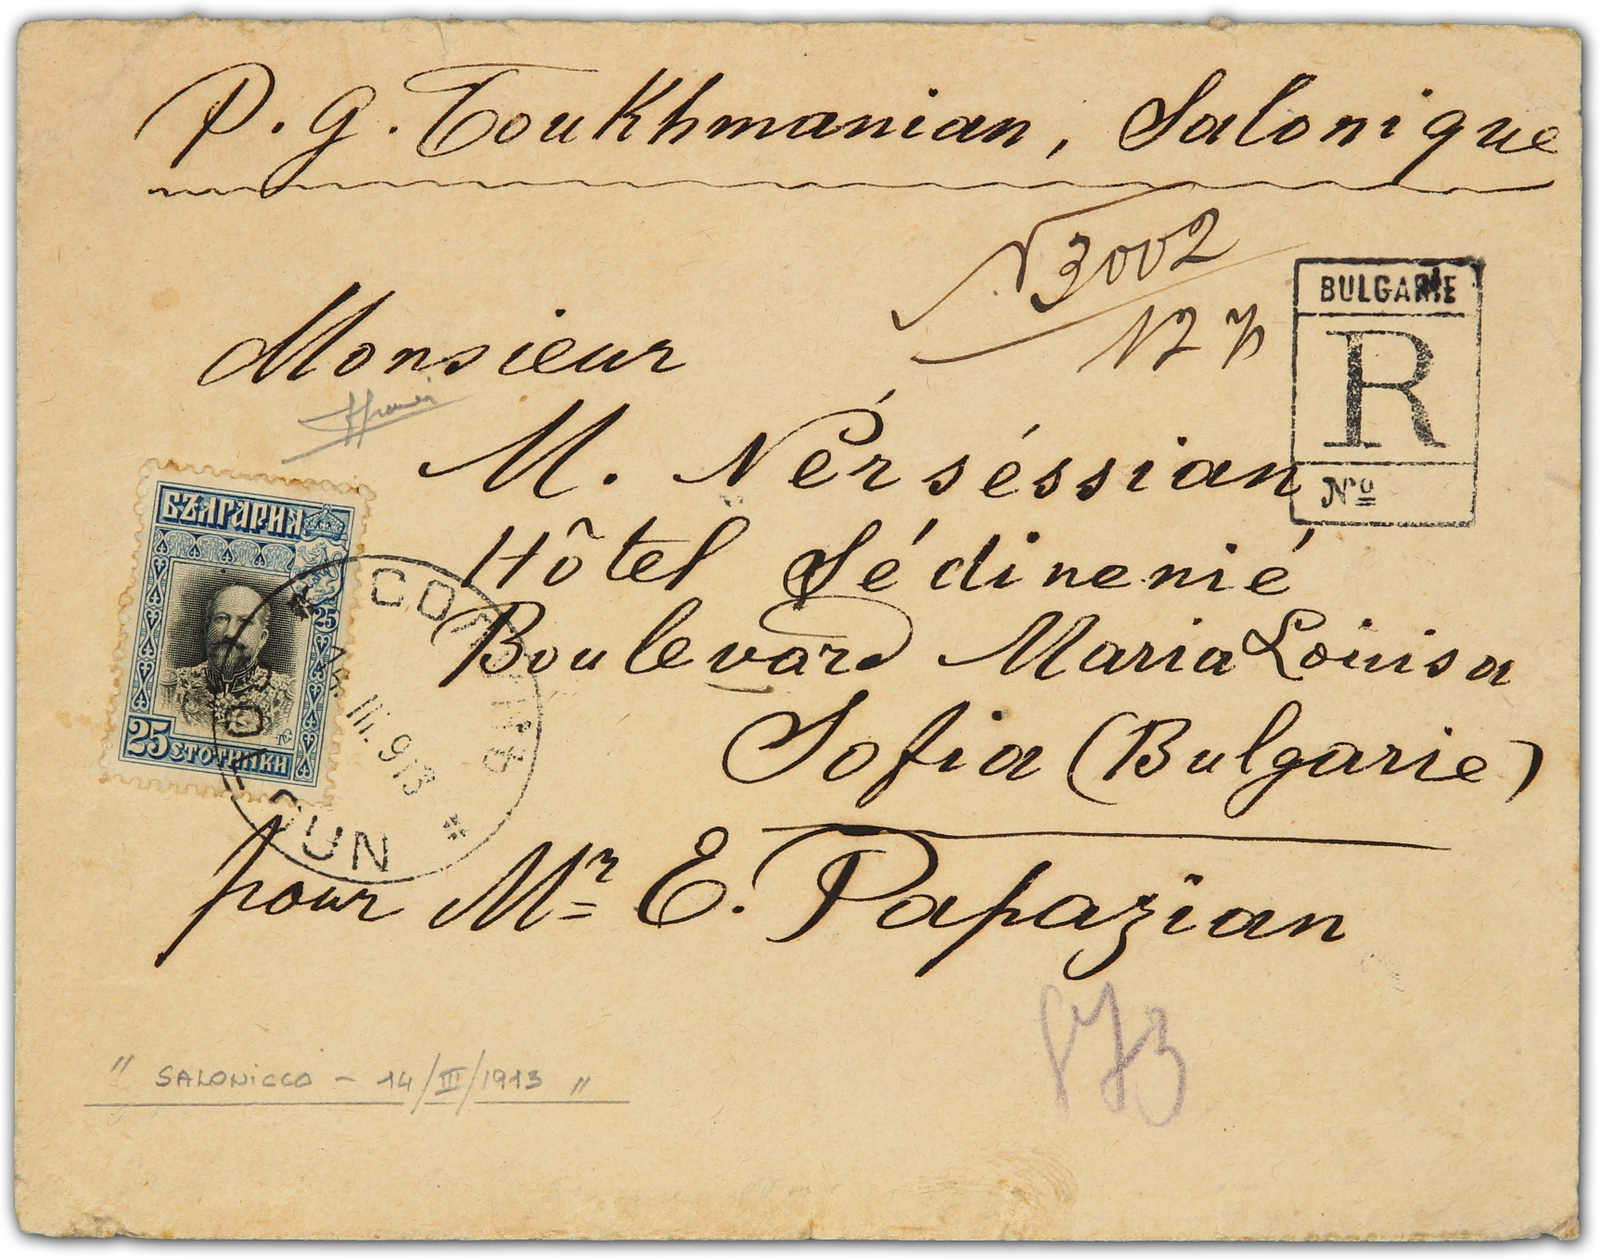 P. G. Toukhmanian, Salonique
N 3002
127
BULGARIE
R
Nº
Monsieur
M. Nérséssian
Hôtel Sédinenié
Boulevard Maria Louisa
Sofia (Bulgarie)
pour Mr E. Papazian
БЪЛГАРИЯ
25
25 СТОТИНКИ
14. III. 913
873
" SALONICCO - 14/III/1913 "